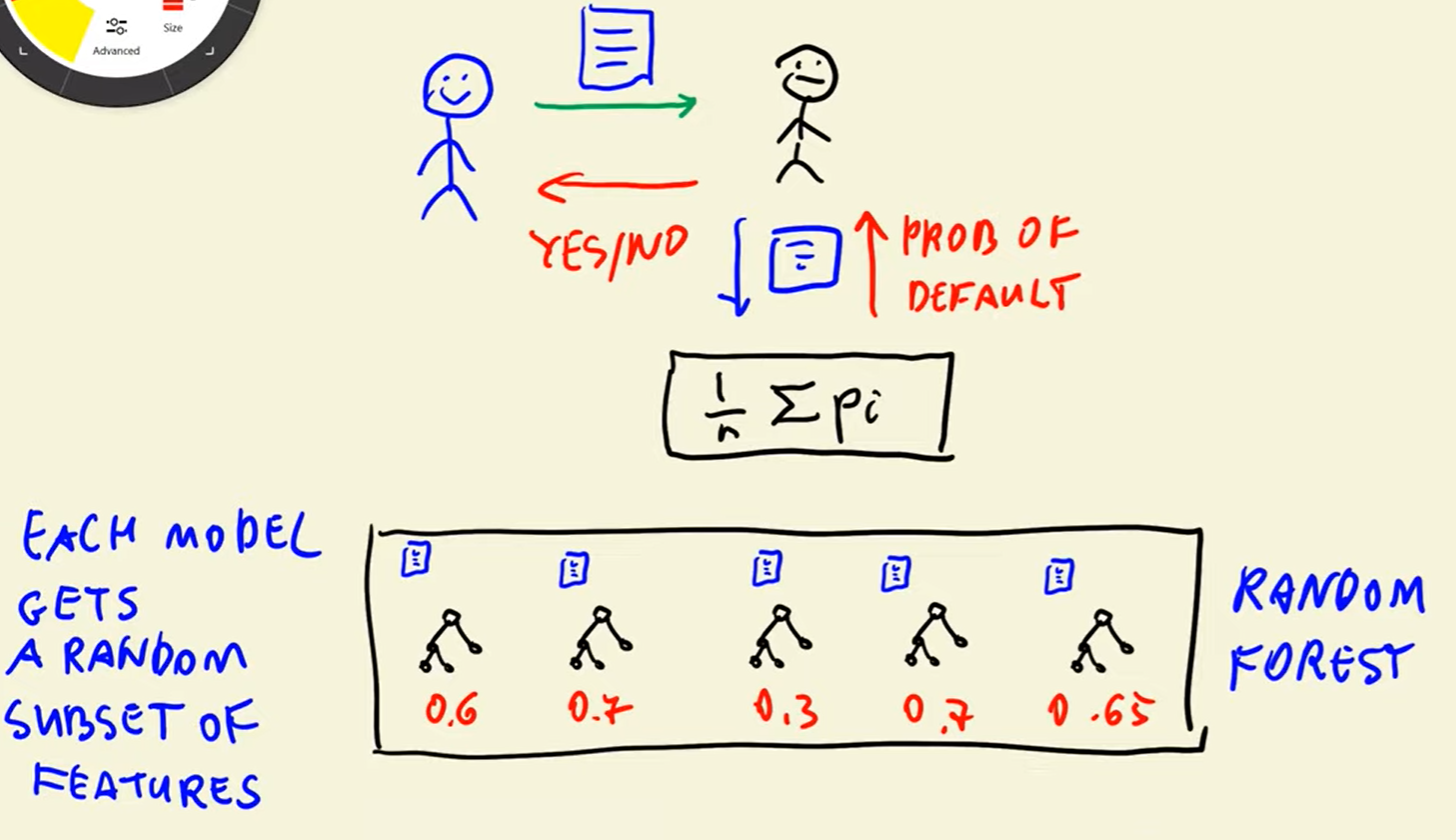 Size
Advanced
YES/NO
PROB OF
DEFAULT
1/n Σ pi
EACH MODEL
GETS
A RANDOM
SUBSET OF
FEATURES
0.6 0.7 0.3 0.7 0.65
RANDOM
FOREST